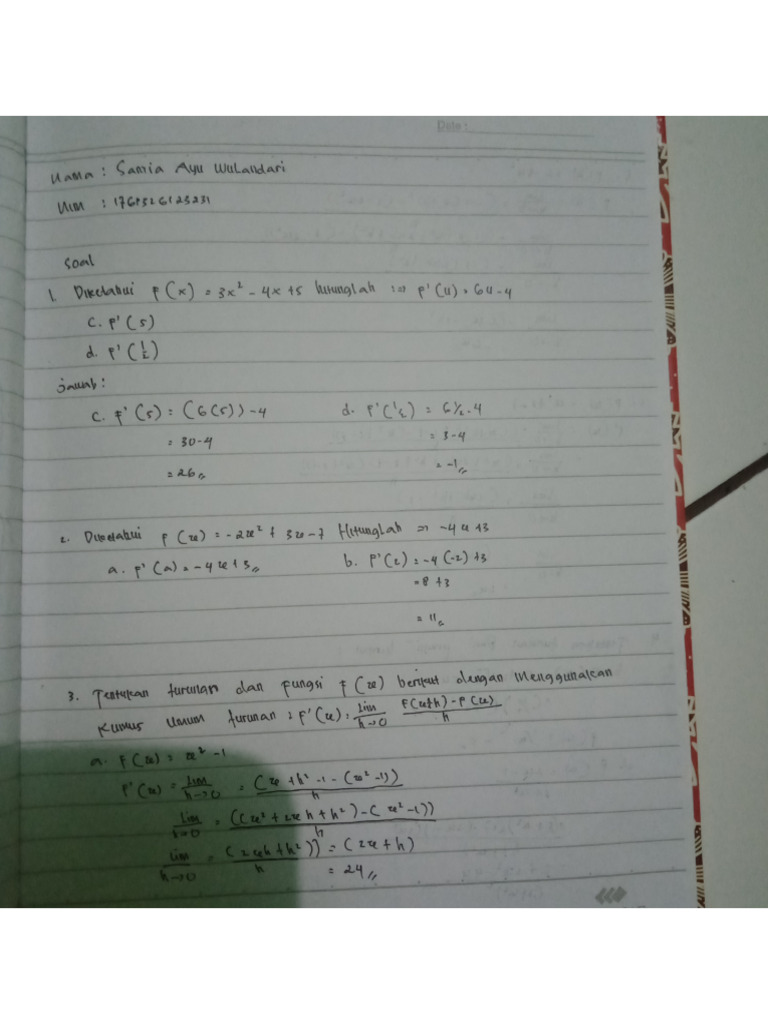 Date :
Nama : Sania Ayu Wulandari
NIM :
Soal
1. Diketahui f(x) = 3x² - 4x + 5 hitunglah : => f'(4) = 64 - 4
c. f'(5)
d. f'(1/2)
jawab :
c. f'(5) = (6(5)) - 4 d. f'(1/2) = 6 1/2 - 4
= 30 - 4 = 3 - 4
= 26 = -1
2. Diketahui f(x) = -2x² + 3x - 7 Hitunglah => -4x + 3
a. f'(a) = -4x + 3 b. f'(2) = -4(-2) + 3
= 8 + 3
= 11
3. Tentukan turunan dan fungsi f(x) berikut dengan menggunakan
Rumus Umum turunan : f'(x) = lim h→0 f(x+h) - f(x) / h
a. f(x) = x² - 1
f'(x) = lim h→0 = (x + h² - 1 - (x² - 1)) / h
lim h→0 = ((x² + 2xh + h²) - (x² - 1)) / h
lim h→0 = (2xh + h²)) / h = (2x + h)
= 24